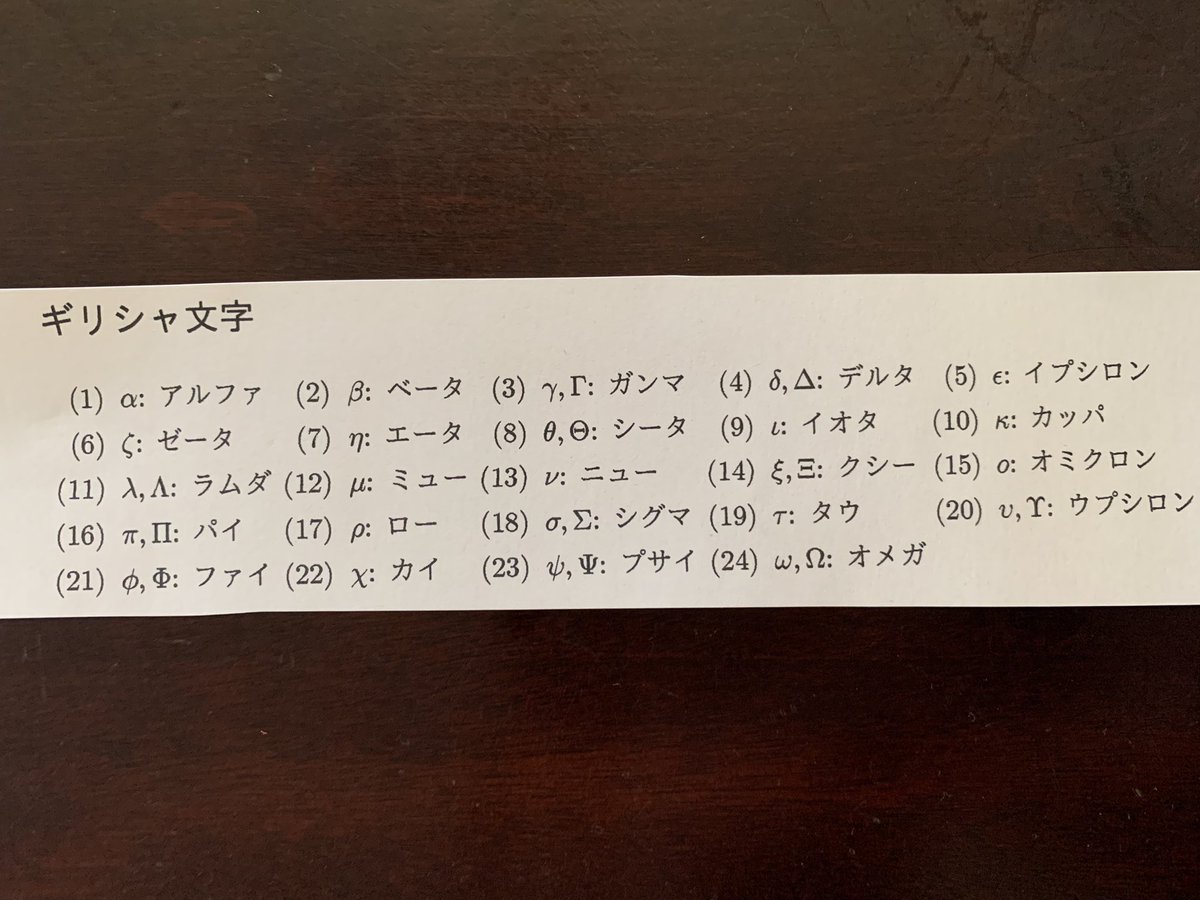 ギリシャ文字
(1) α: アルファ (2) β: ベータ (3) γ, Γ: ガンマ (4) δ, Δ: デルタ (5) ϵ: イプシロン
(6) ζ: ゼータ (7) η: エータ (8) θ, Θ: シータ (9) ι: イオタ (10) κ: カッパ
(11) λ, Λ: ラムダ (12) μ: ミュー (13) ν: ニュー (14) ξ, Ξ: クシー (15) ο: オミクロン
(16) π, Π: パイ (17) ρ: ロー (18) σ, Σ: シグマ (19) τ: タウ (20) υ, ϒ: ウプシロン
(21) ϕ, Φ: ファイ (22) χ: カイ (23) ψ, Ψ: プサイ (24) ω, Ω: オメガ